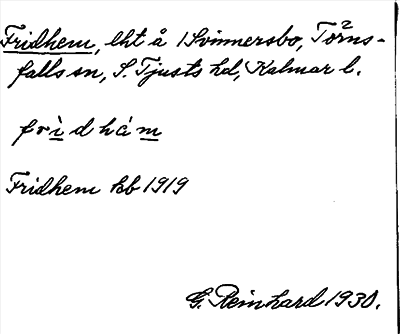 Fridhem, lht å 1 Svinnersbo, Törns-
falls sn, S. Tjusts hd, Kalmar l.
fri̱dhám̱
Fridhem kb 1919
G. Reinhard 1930.